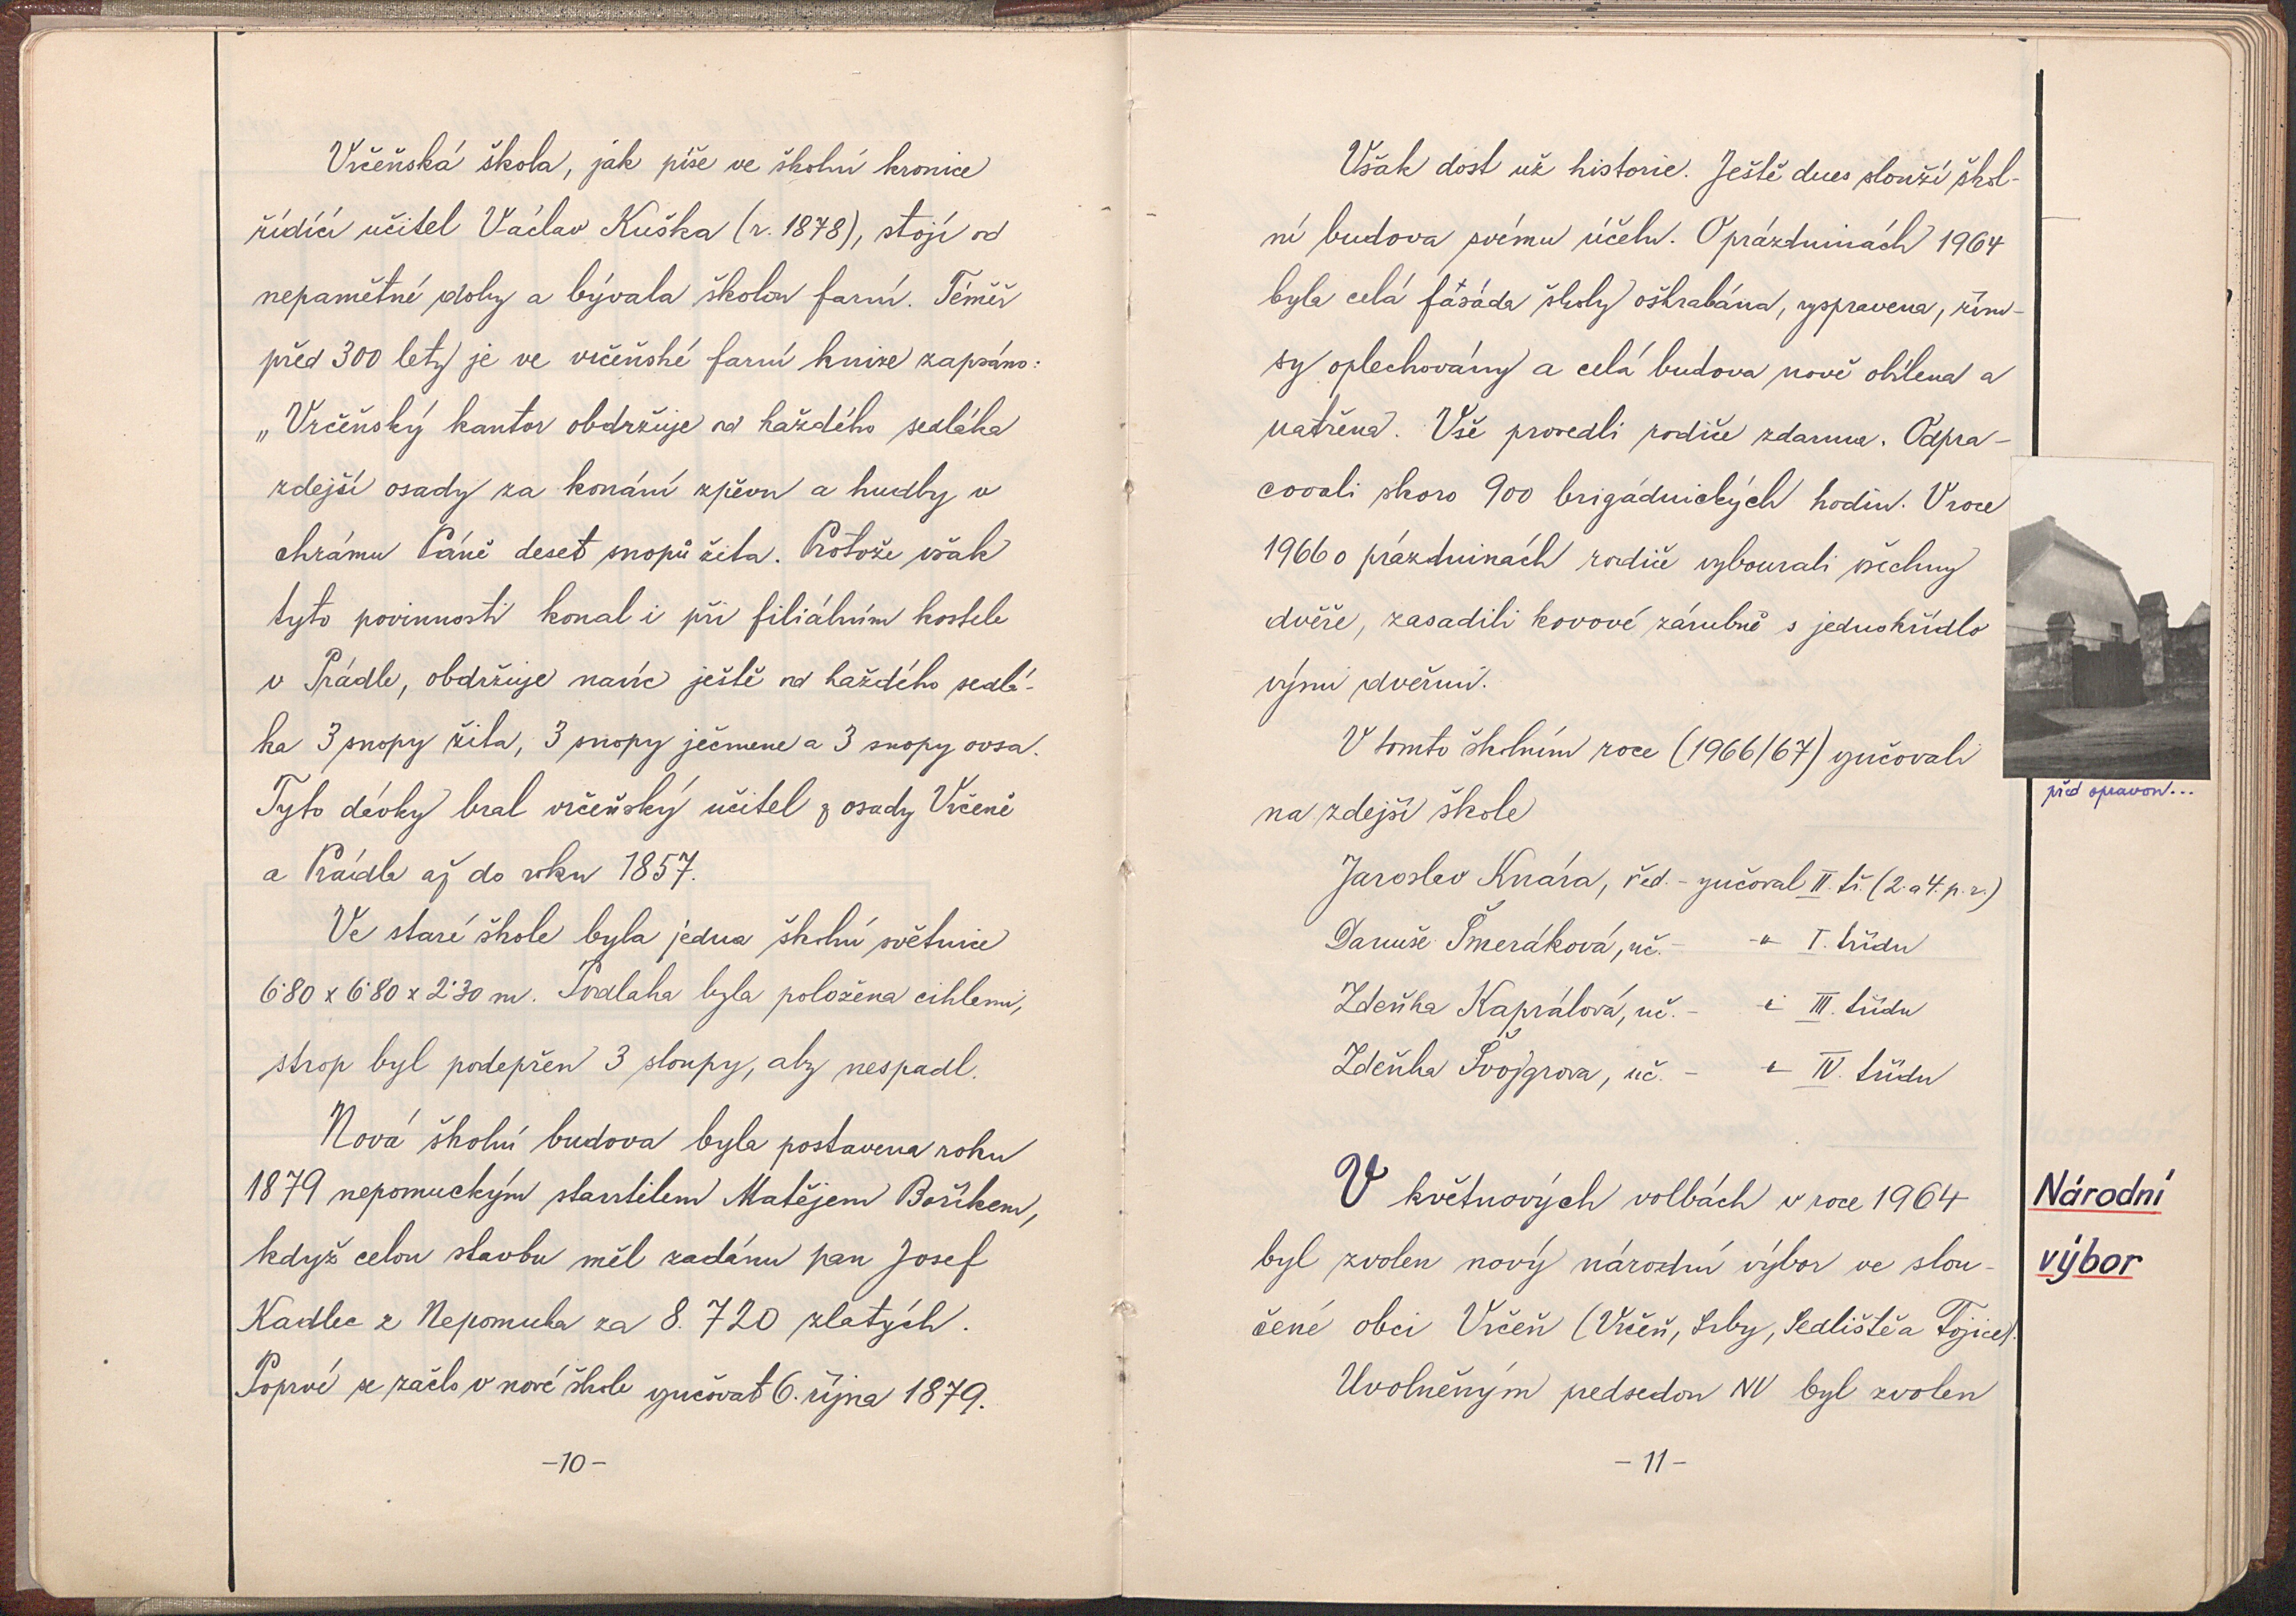 Vrčeňská škola, jak píše ve školní kronice
řídící učitel Václav Kuška (r. 1878), stojí od
nepamětné doby a bývala školou farní. Téměř
před 300 lety je ve vrčeňské farní knize zapsáno:
„Vrčeňský kantor obdržuje od každého sedláka
zdejší osady za konání zpěvu a hudby v
chrámu Páně deset snopů žita. Protože však
tyto povinnosti konal i při filiálním kostele
v Prádle, obdržuje navíc ještě od každého sedlá-
ka 3 snopy žita, 3 snopy ječmene a 3 snopy ovsa.
Tyto dávky bral vrčeňský učitel z osady Vrčeně
a Prádla až do roku 1857.
Ve staré škole byla jedna školní světnice
6·80 x 6·80 x 2·30 m. Podlaha byla položena cihlami,
strop byl podepřen 3 sloupy, aby nespadl.
Nová školní budova byla postavena roku
1879 nepomuckým stavitelem Matějem Boříkem,
když celou stavbu měl zadánu pan Josef
Kadlec z Nepomuka za 8.720 zlatých.
Poprvé se začlo v nové škole vyučovat 6. října 1879.
-10-
Však dost už historie. Ještě dnes slouží škol-
ní budova svému účelu. O prázdninách 1964
byla celá fásáda školy oškrabána, vyspravena, řím-
sy oplechovány a celá budova nově obílena a
natřena. Vše provedli rodiče zdarma. Odpra-
covali skoro 900 brigádnických hodin. V roce
1966 o prázdninách rodiče vybourali všechny
dvěře, zasadili kovové zárubně s jednokřídlo
vými dveřmi.
před opravou...
V tomto školním roce (1966/67) vyučovali
na zdejší škole
Jaroslav Knára, řed. - vyučoval II. tř. (2. a 4. p. r.)
Danuše Šmeráková, uč. - -"- I. třídu
Zdeňka Kaprálová, uč. - " III. třídu
Zdeňka Švojgrova, uč. - " IV. třídu
V květnových volbách v roce 1964
Národní
byl zvolen nový národní výbor ve slou-
výbor
čené obci Vrčeň (Vrčeň, Srby, Sedliště a Tojice).
Uvolněným předsedou NV byl zvolen
-11-